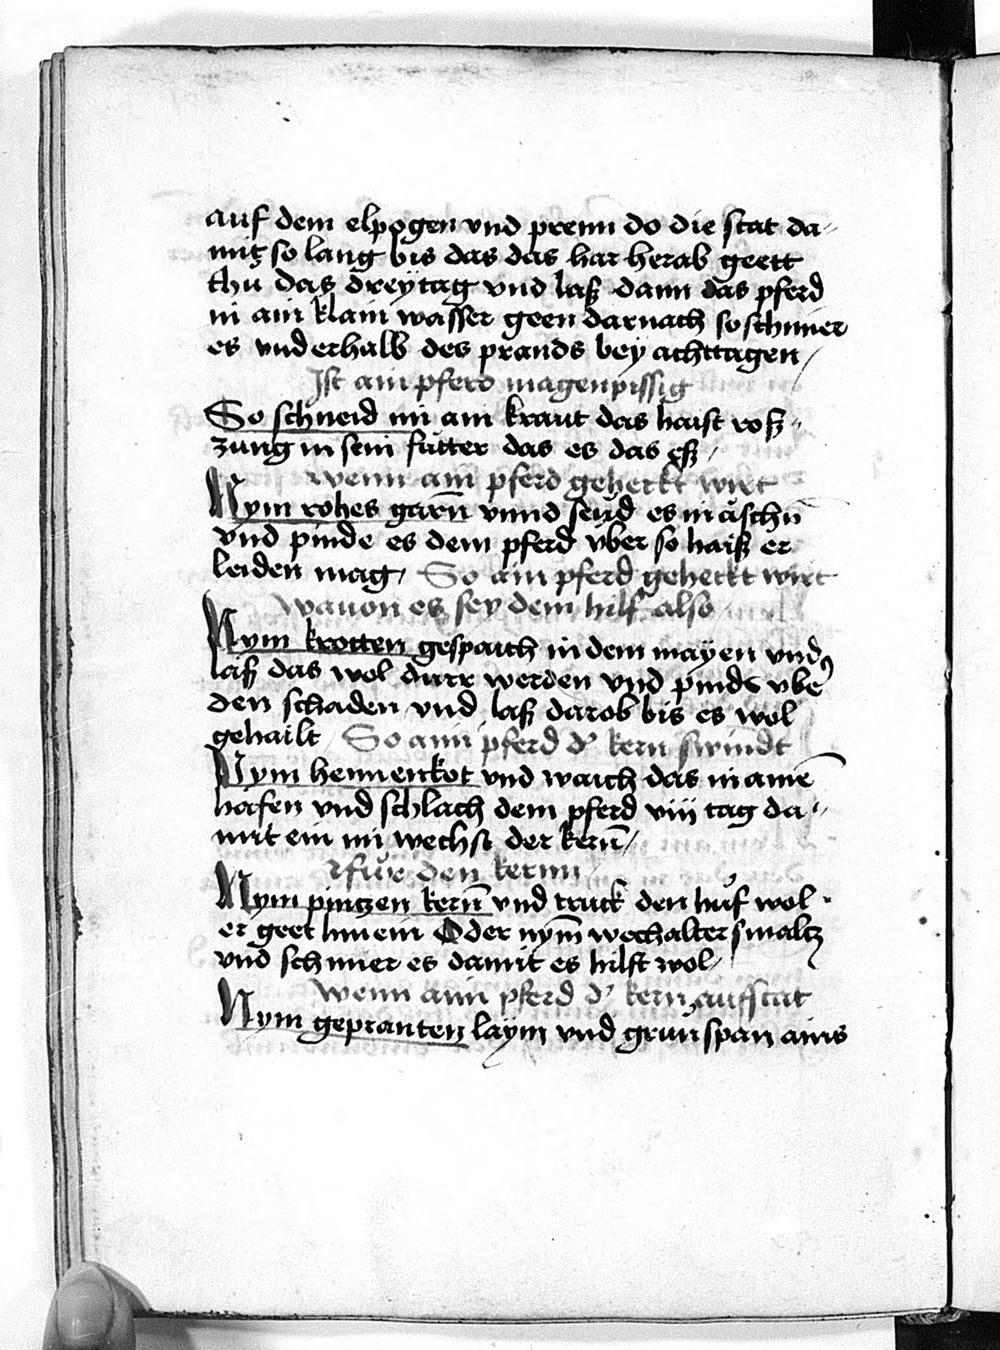 auf dem elpogen vnd prenn do die stat da-
mit so lang bis das das har herab geett
thů das dreÿ tag vnd laß dann das pferd
in ain klain wasser geen darnach so schmier
es vnderhalb des prands bey achttagen /
Ist ain pferd magenpissig
So schneid im ain kraut das haist roß-
zung in sein fůtter das es das eß /
wenn ain pferd geheckt wirt
Nym rohes garñ vnnd seud es in äschñ
vnd pinde es dem pferd vber so haiß er
leiden mag / So ain pferd geheckt wirt
wauon es sey dem hilf also
Nym krotten gespaich in dem mayen vnd
laß das wol durr werden vnd pinds vber
den schaden vnd laß darob bis es wol
gehailt / So aim pferd d' kern swindt
Nym hennenkot vnd waich das in aine͂
hafen vnd schlach dem pferd viij tag da-
mit ein im wechst der kerñ /
Für den kernn
Nym pintzen kerñ vnd truck den hůf wol
er geet hinein Oder nym̄ wechalter smaltz
vnd schmier es damit es hilft wol /
wenn aim pferd d' kern aufstat
Nym gepranten laym vnd grůnspan ains